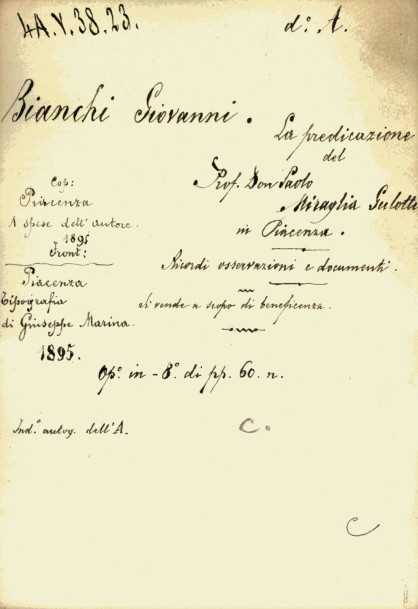 4A.Y.38.23.
d°. A.
Bianchi Giovanni.
La predicazione
del
Prof. Don Paolo
Miraglia Gulotti
in Piacenza.
Ricordi osservazioni e documenti.
Si vende a scopo di beneficenza.
Cop:
Piacenza
A spese dell'autore.
1895
Front:
Piacenza
Tipografia
di Giuseppe Marina.
1895.
Op°. in-8°. di pp. 60. n.
Ind°. autog. dell'A.
C.
C